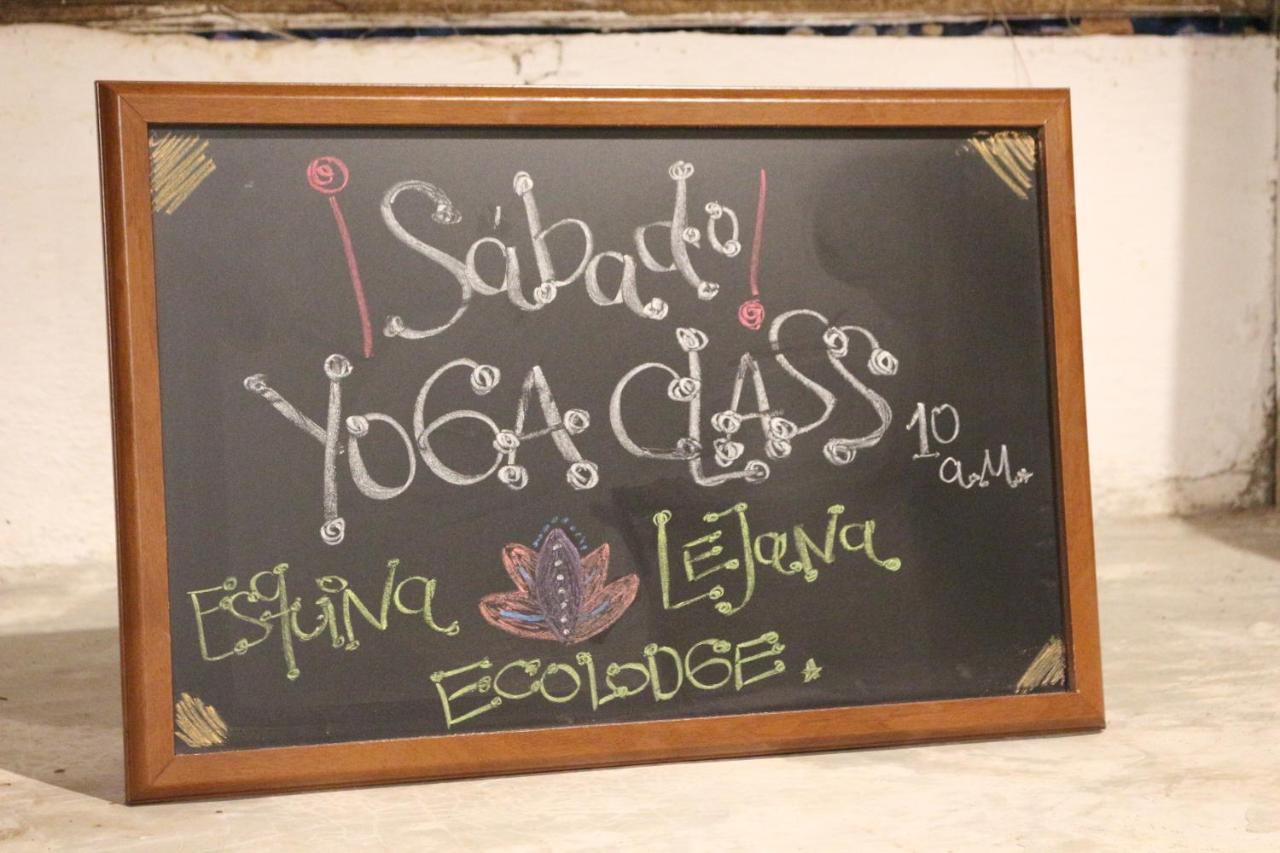 ¡Sábado!
YOGA CLASS 10 a.m.
Esquina Lejana
ECOLODGE.